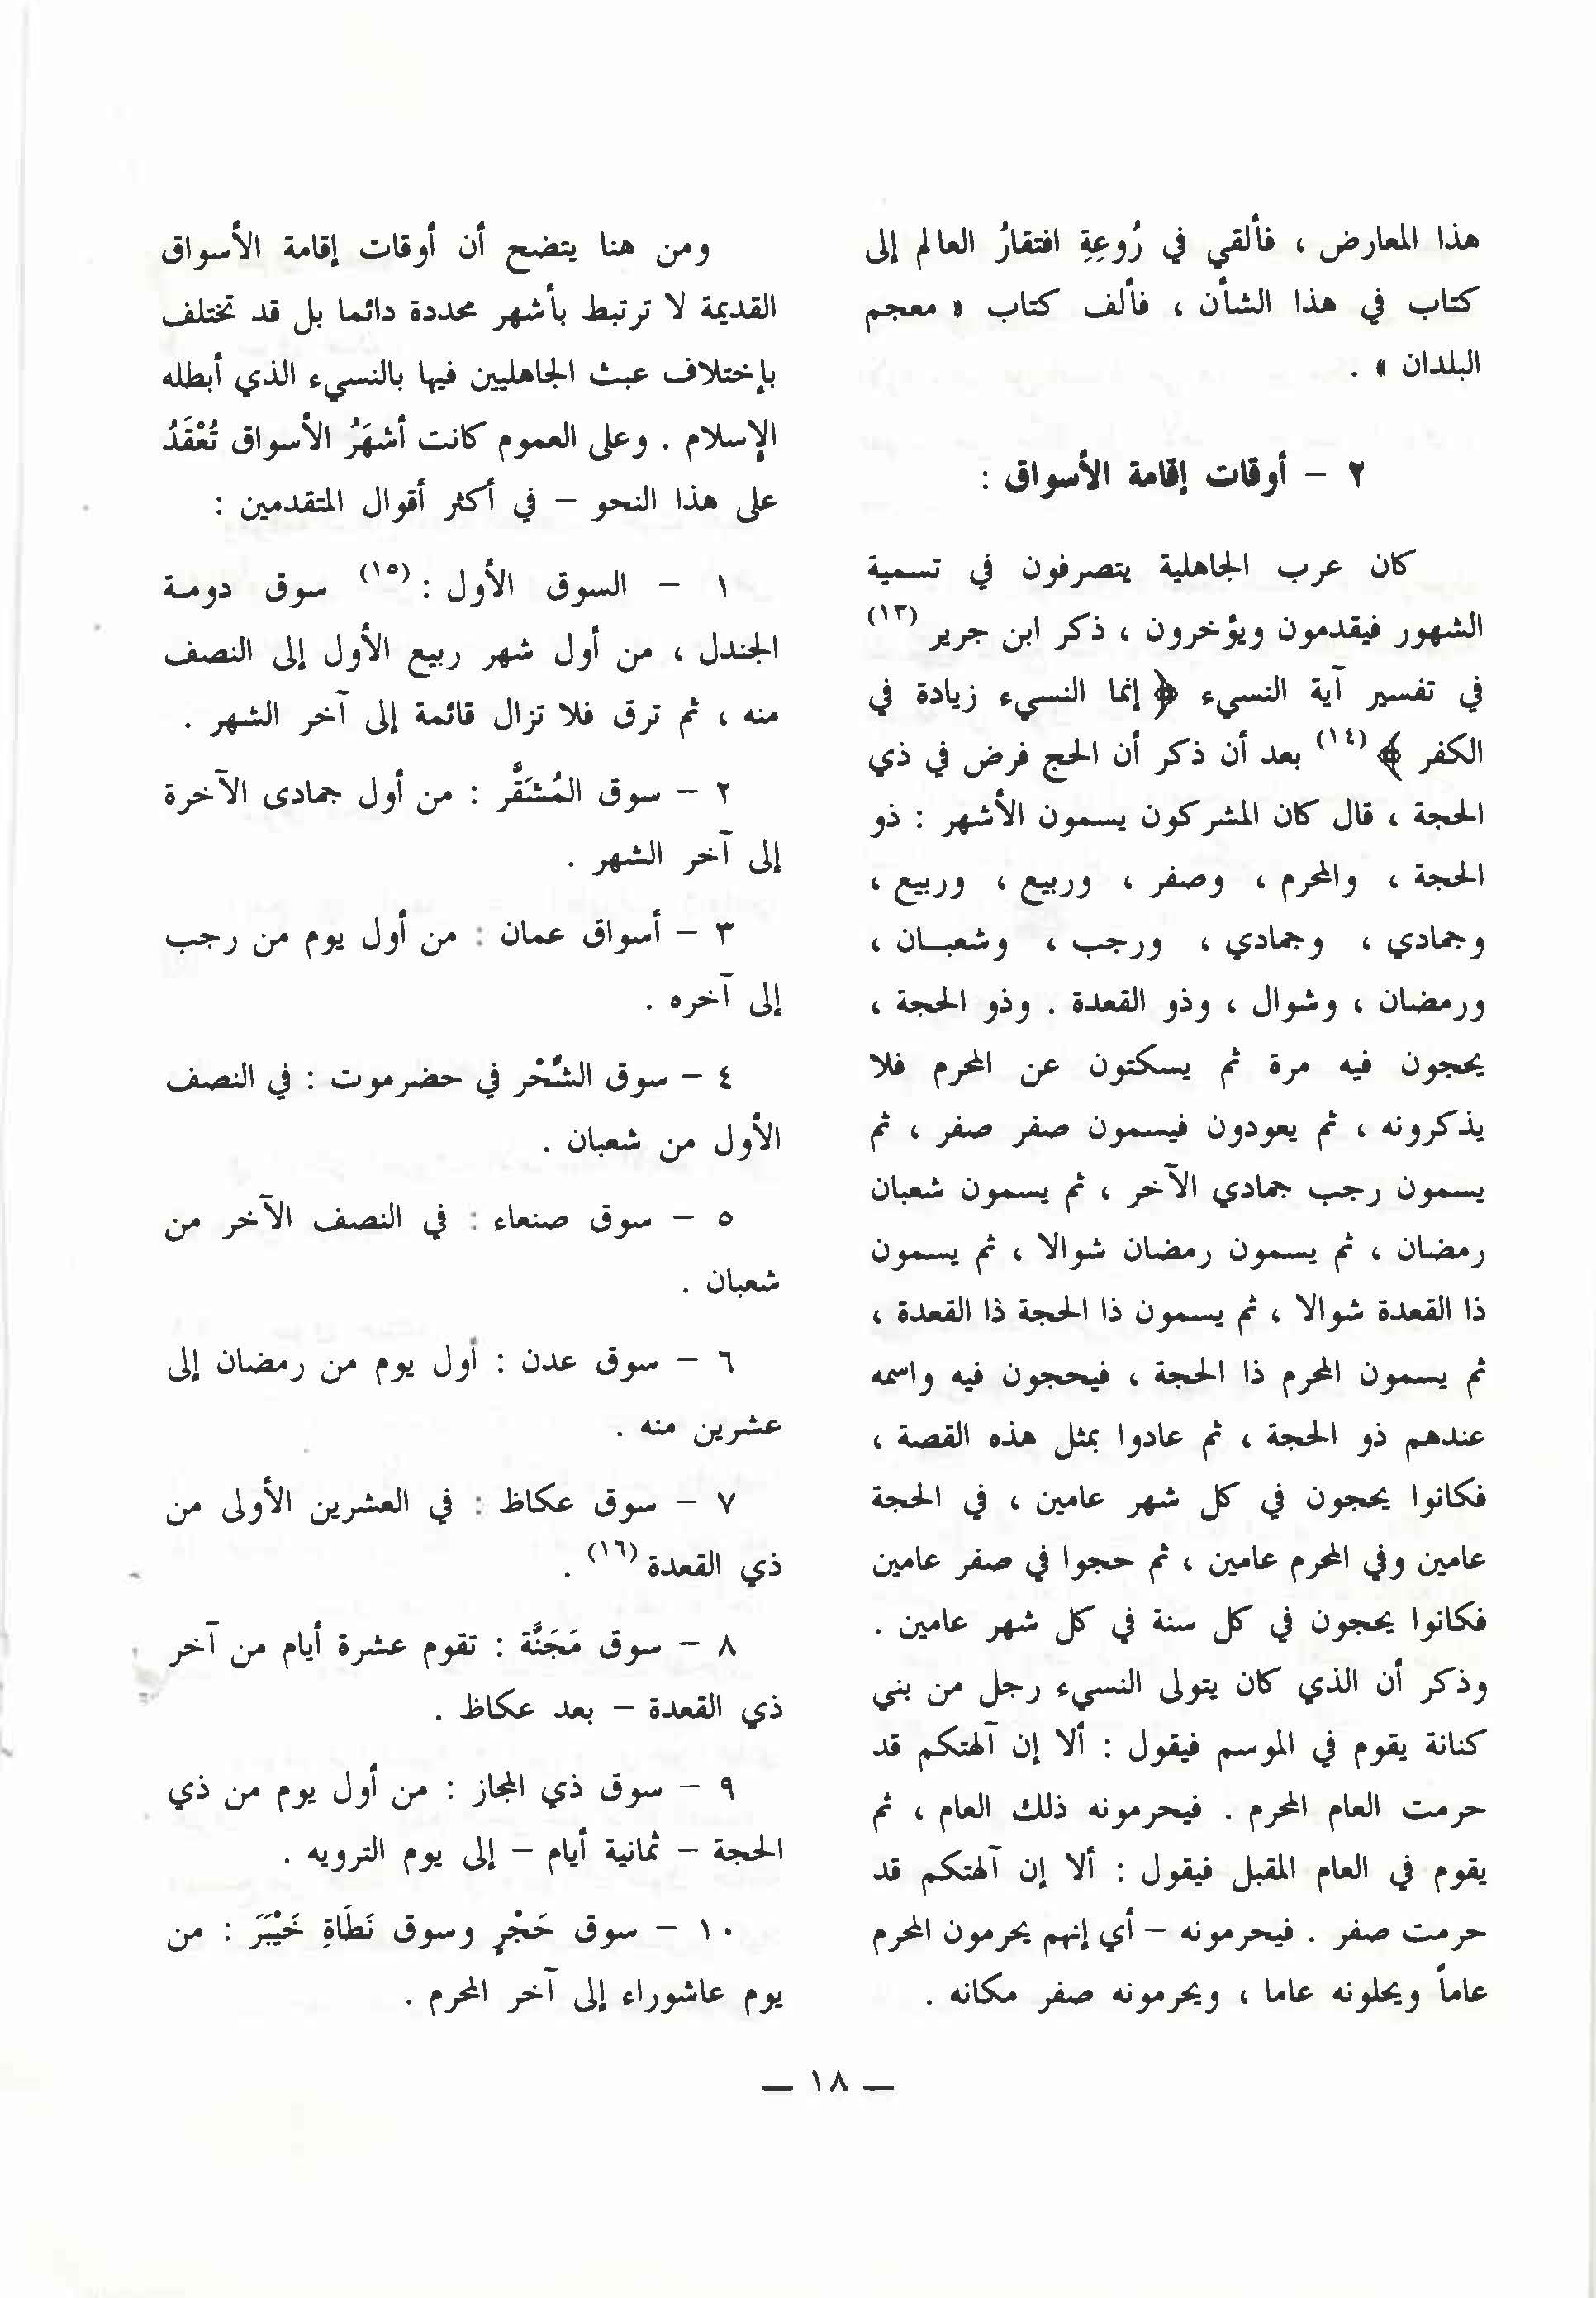 هذا المعارض ، فألقي في رُوعِةِ افتقارُ العالم إلى
كتاب في هذا الشأن ، فألف كتاب « معجم
البلدان » .
٢ – أوقات إقامة الأسواق :
كان عرب الجاهلية يتصرفون في تسمية
الشهور فيقدمون ويؤخرون ، ذكر ابن جرير (١٣)
في تفسير آية النسيء ﴿ إنما النسيء زيادة في
الكفر ﴾ (١٤) بعد أن ذكر أن الحج فرض في ذي
الحجة ، قال كان المشركون يسمون الأشهر : ذو
الحجة ، والمحرم ، وصفر ، وربيع ، وربيع ،
وجمادي ، وجمادي ، ورجب ، وشعبـان ،
ورمضان ، وشوال ، وذو القعدة . وذو الحجة ،
يحجون فيه مرة ثم يسكتون عن المحرم فلا
يذكرونه ، ثم يعودون فيسمون صفر صفر ، ثم
يسمون رجب جمادي الآخر ، ثم يسمون شعبان
رمضان ، ثم يسمون رمضان شوالا ، ثم يسمون
ذا القعدة شوالا ، ثم يسمون ذا الحجة ذا القعدة ،
ثم يسمون المحرم ذا الحجة ، فيحجون فيه واسمه
عندهم ذو الحجة ، ثم عادوا بمثل هذه القصة ،
فكانوا يحجون في كل شهر عامين ، في الحجة
عامين وفي المحرم عامين ، ثم حجوا في صفر عامين
فكانوا يحجون في كل سنة في كل شهر عامين .
وذكر أن الذي كان يتولى النسيء رجل من بني
كنانة يقوم في الموسم فيقول : ألا إن آلهتكم قد
حرمت العام المحرم . فيحرمونه ذلك العام ، ثم
يقوم في العام المقبل فيقول : ألا إن آلهتكم قد
حرمت صفر . فيحرمونه – أي إنهم يحرمون المحرم
عاماً ويحلونه عاما ، ويحرمونه صفر مكانه .
ومن هنا يتضح أن أوقات إقامة الأسواق
القديمة لا ترتبط بأشهر محددة دائما بل قد تختلف
بإختلاف عبث الجاهليين فيها بالنسيء الذي أبطله
الإسلام . وعلى العموم كانت أشهَرُ الأسواق تُعْقَدُ
على هذا النحو – في أكثر أقوال المتقدمين :
١ – السوق الأول : (١٥) سوق دومـة
الجندل ، من أول شهر ربيع الأول إلى النصف
منه ، ثم ترق فلا تزال قائمة إلى آخر الشهر .
٢ – سوق المُشَقَّر : من أول جمادى الآخرة
إلى آخر الشهر .
٣ – أسواق عمان : من أول يوم من رجب
إلى آخره .
٤ – سوق الشَّحْر في حضرموت : في النصف
الأول من شعبان .
٥ – سوق صنعاء : في النصف الآخر من
شعبان .
٦ – سوق عدن : أول يوم من رمضان إلى
عشرين منه .
٧ – سوق عكاظ : في العشرين الأولى من
ذي القعدة (١٦) .
٨ – سوق مَجَنَّة : تقوم عشرة أيام من آخر
ذي القعدة – بعد عكاظ .
٩ – سوق ذي المجاز : من أول يوم من ذي
الحجة – ثمانية أيام – إلى يوم الترويه .
١٠ – سوق حَجْرٍ وسوق نَطَاةِ خَيْبَرَ : من
يوم عاشوراء إلى آخر المحرم .
— ١٨ —